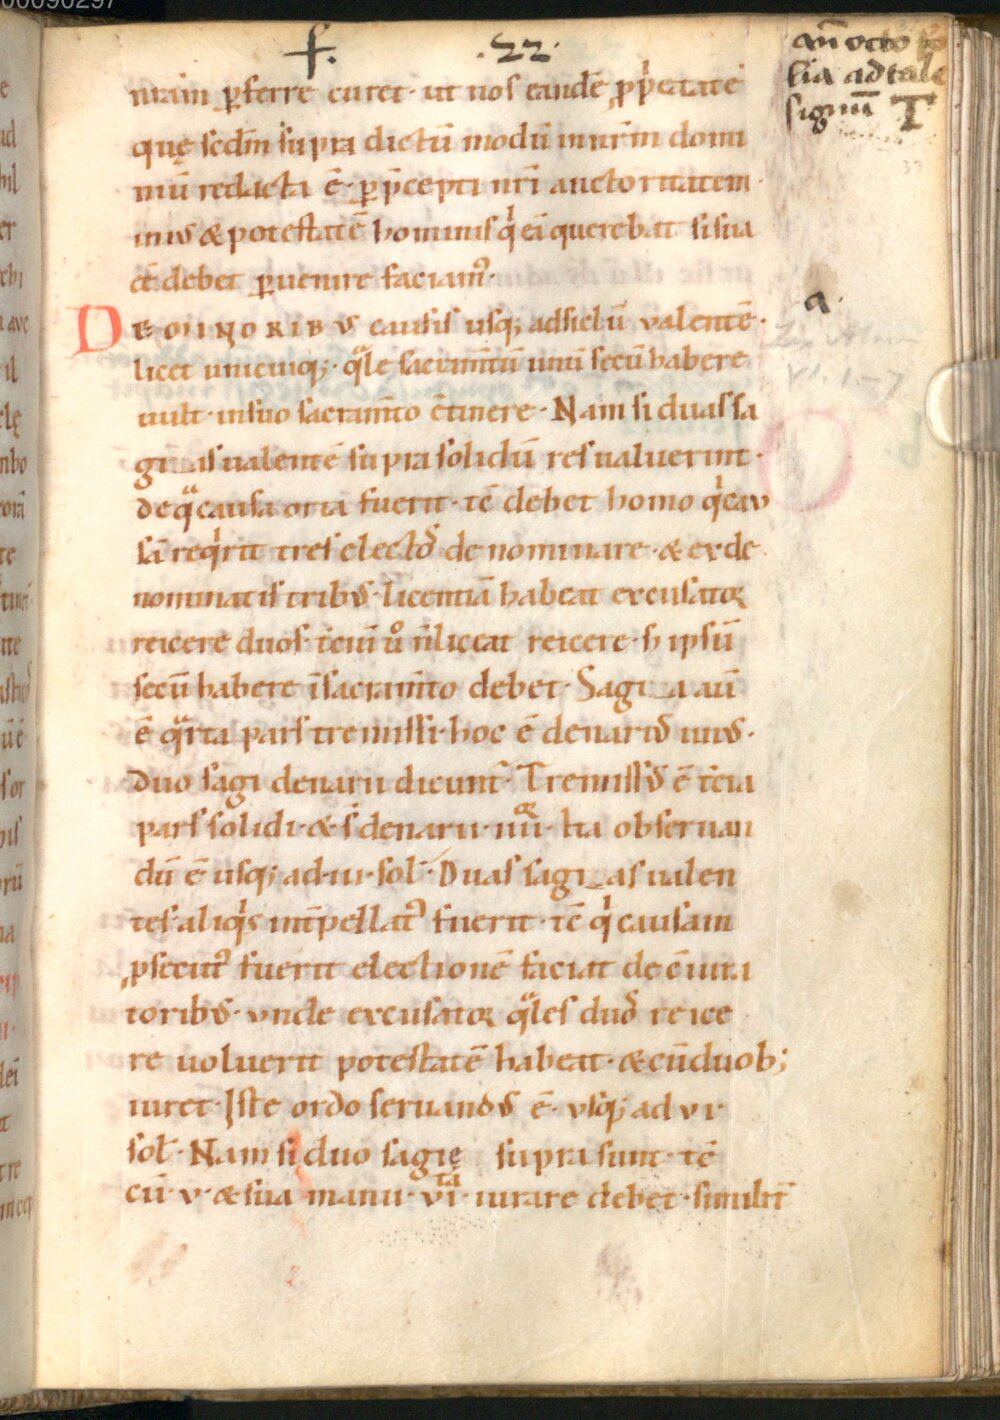 f. .22.
an̄ octo fo
lia ad tale
signū T
niam ꝑferre curet· ut nos eandē ꝓprietatē
quę scdm̄ supra dictū modū in nr̄m domi
niū redacta ē· ꝑ p̄cepti nr̄i auctoritatem·
in ius & potestatē hominis qͥ eā querebat si sua
ee᷑ debet ꝑuenire faciam᷒·
a.
DE MINORIBVS causis usq; ad siclū valentē·
licet unicuiq;· qͣle sacram̄tū unū secū habere
uult· in suo sacram̄to c̄tinere· Nam si duas sa
gi as ualentē supra solidū res ualuerint·
de qͣ causa orta fuerit· tē debet homo qͥ cau
sā reqͥrit tres electos denominare· & ex de
nominatis tribus· licentiā habeat excusator
reicere duos· t̄ciū ů n̄ liceat reicere· s; ipsū
secū habere ī sacram̄to debet· Sagi a aū
ē qͣrta pars tremissi· hoc ē denarius unus·
Duo sagi denarii dicunt᷑· Tremissus ē t̄cia
pars solidi· & s̄ denarii· iiii· Ita obseruan
dū ē usq; ad· iii· sol᷑· Duas sagi as ualen
tes aliqͥs int̄pellat᷒ fuerit· tē qͥ causam
ꝓsecut᷒ fuerit electionē faciat de c̄iura
toribus· vnde excusator qͣles duos reice
re uoluerit potestatē habeat· & cū duob;
iuret· Iste ordo seruandus ē· vsq; ad vi
sol᷑· Nam si duo sagię supra sunt· tē
cū· v· & sua manu· vi ta· iurare debet· similit᷑